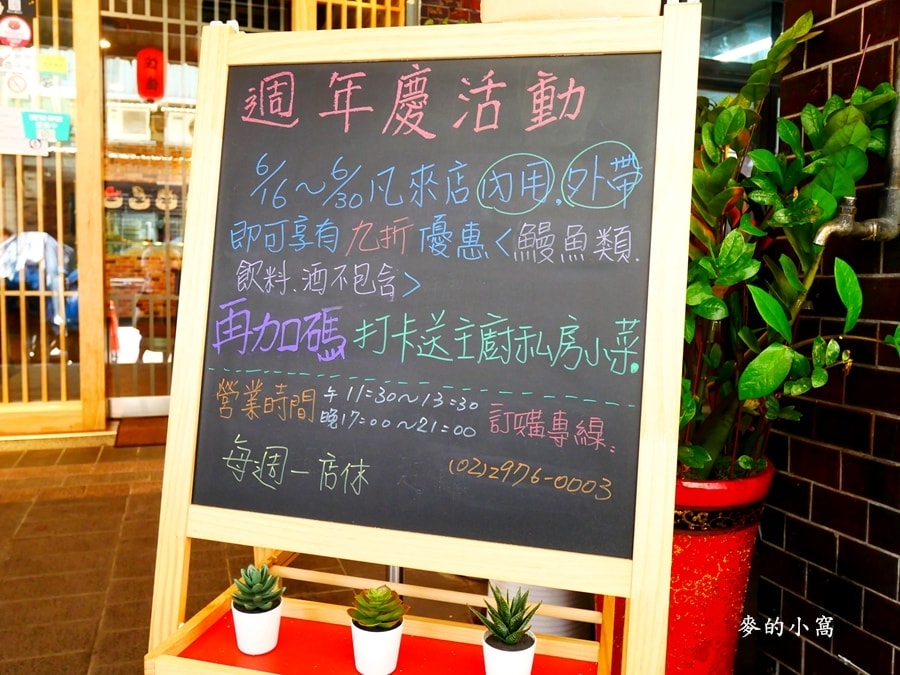 週年慶活動
6/16～6/30凡來店內用.外帶
即可享有九折優惠<鰻魚類.
飲料.酒不包含>
再加碼 打卡送主廚私房小菜.
營業時間 午11:30～13:30
晚17:00～21:00
訂購專線:
(02)2976-0003
每週一店休
麥的小窩